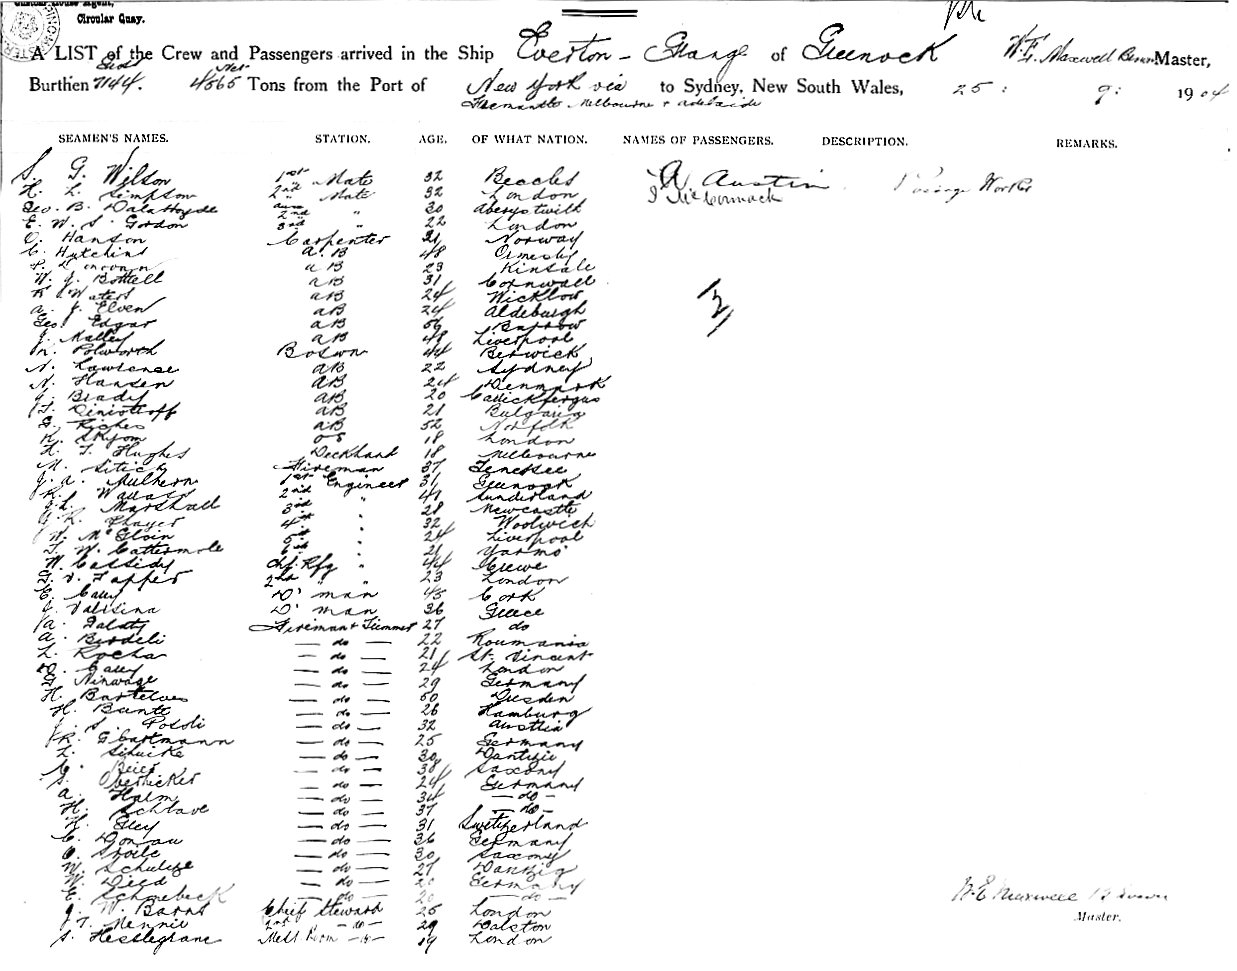 Custom House Agent,
Circular Quay.
A LIST of the Crew and Passengers arrived in the Ship Everton Grange of Greenock W. E. Maxwell Brown Master,
Burthen 7144. 4565 Nett Tons from the Port of New York via to Sydney, New South Wales, 25: 9: 1904
Fremantle Melbourne + Adelaide
SEAMEN'S NAMES. STATION. AGE. OF WHAT NATION. NAMES OF PASSENGERS. DESCRIPTION. REMARKS.
S. G. Wilson 1st Mate 32 Beccles A Austin Passage Worker
H. L. Simpson 2nd Mate 32 London J McCormack
Geo. B. Dalahoyde 2nd " 30 Aberystwith
E. W. S. Gordon 3rd " 22 London
O. Hanson Carpenter 21 Norway
C. Hutchins A.B 48 Ormesby
aB 23 Kinsale
W. J. Bottell aB 31 Cornwall
R Waters aB 24 Wicklow
A. J. Elven aB 24 Aldeburgh
Geo. Edgar aB 56 Barrow
J. Malley aB 48 Liverpool
Polworth Bosun 44 Berwick
N. Lawrence aB 22 Sydney
N. Hansen aB 24 Denmark
J. Brady aB 20 Carrickfergus
aB 21 Bulgaria
G. Riches aB 52 Norfolk
OS 18 London
H. T. Hughes Deckhand 18 Melbourne
M. Fireman 37 Tenessee
J. A. Mulhern 1st Engineer 31 Greenock
R. Wallace 2nd " 41 Sunderland
J. L. Marshall 3rd " 28 Newcastle
J. R. Thayer 4th " 32 Woolwich
W. McGloin 5th " 24 Liverpool
T. W. Cattermole 6th " 21 Yarmo
W. Cassidy Chf. Rfg " 44 Crewe
G. V. Tapper 2nd " " 23 London
C. Casey D' man 45 Cork
J. Valisina D' man 36 Greece
A. Galaty Fireman & Trimmer 27 do
A. Berdeli — do — 22 Roumania
L. Rocha — do — 21 St. Vincent
D. Casey — do — 24 London
G. Ninwage — do — 29 Germany
H. Bartelves — do — 50 Dresden
H. Bante — do — 26 Hamburg
J. S. Possli — do — 32 Austria
R. Gbartmann — do — 25 Germany
L. Schucke — do — 30 Dantzic
C. Beier — do — 38 Saxony
S. Oberhicker — do — 24 Germany
A. Halm — do — 34 — do —
H. Schlave — do — 37 — do —
K. Gley — do — 31 Switzerland
C. Donau — do — 36 Germany
O. Stoile — do — 30 Saxony
W. Schulze — do — 27 Danzig
W. Died — do — 20 Germany
E. Schoebeck — do — 20 — do —
J. W. Barns Chief Steward 25 London
J. T. Rennie 2nd — do — 29 Dalston
S. Hesslegrane Mess Room — do — 19 London
W. E. Maxwell Brown
Master.